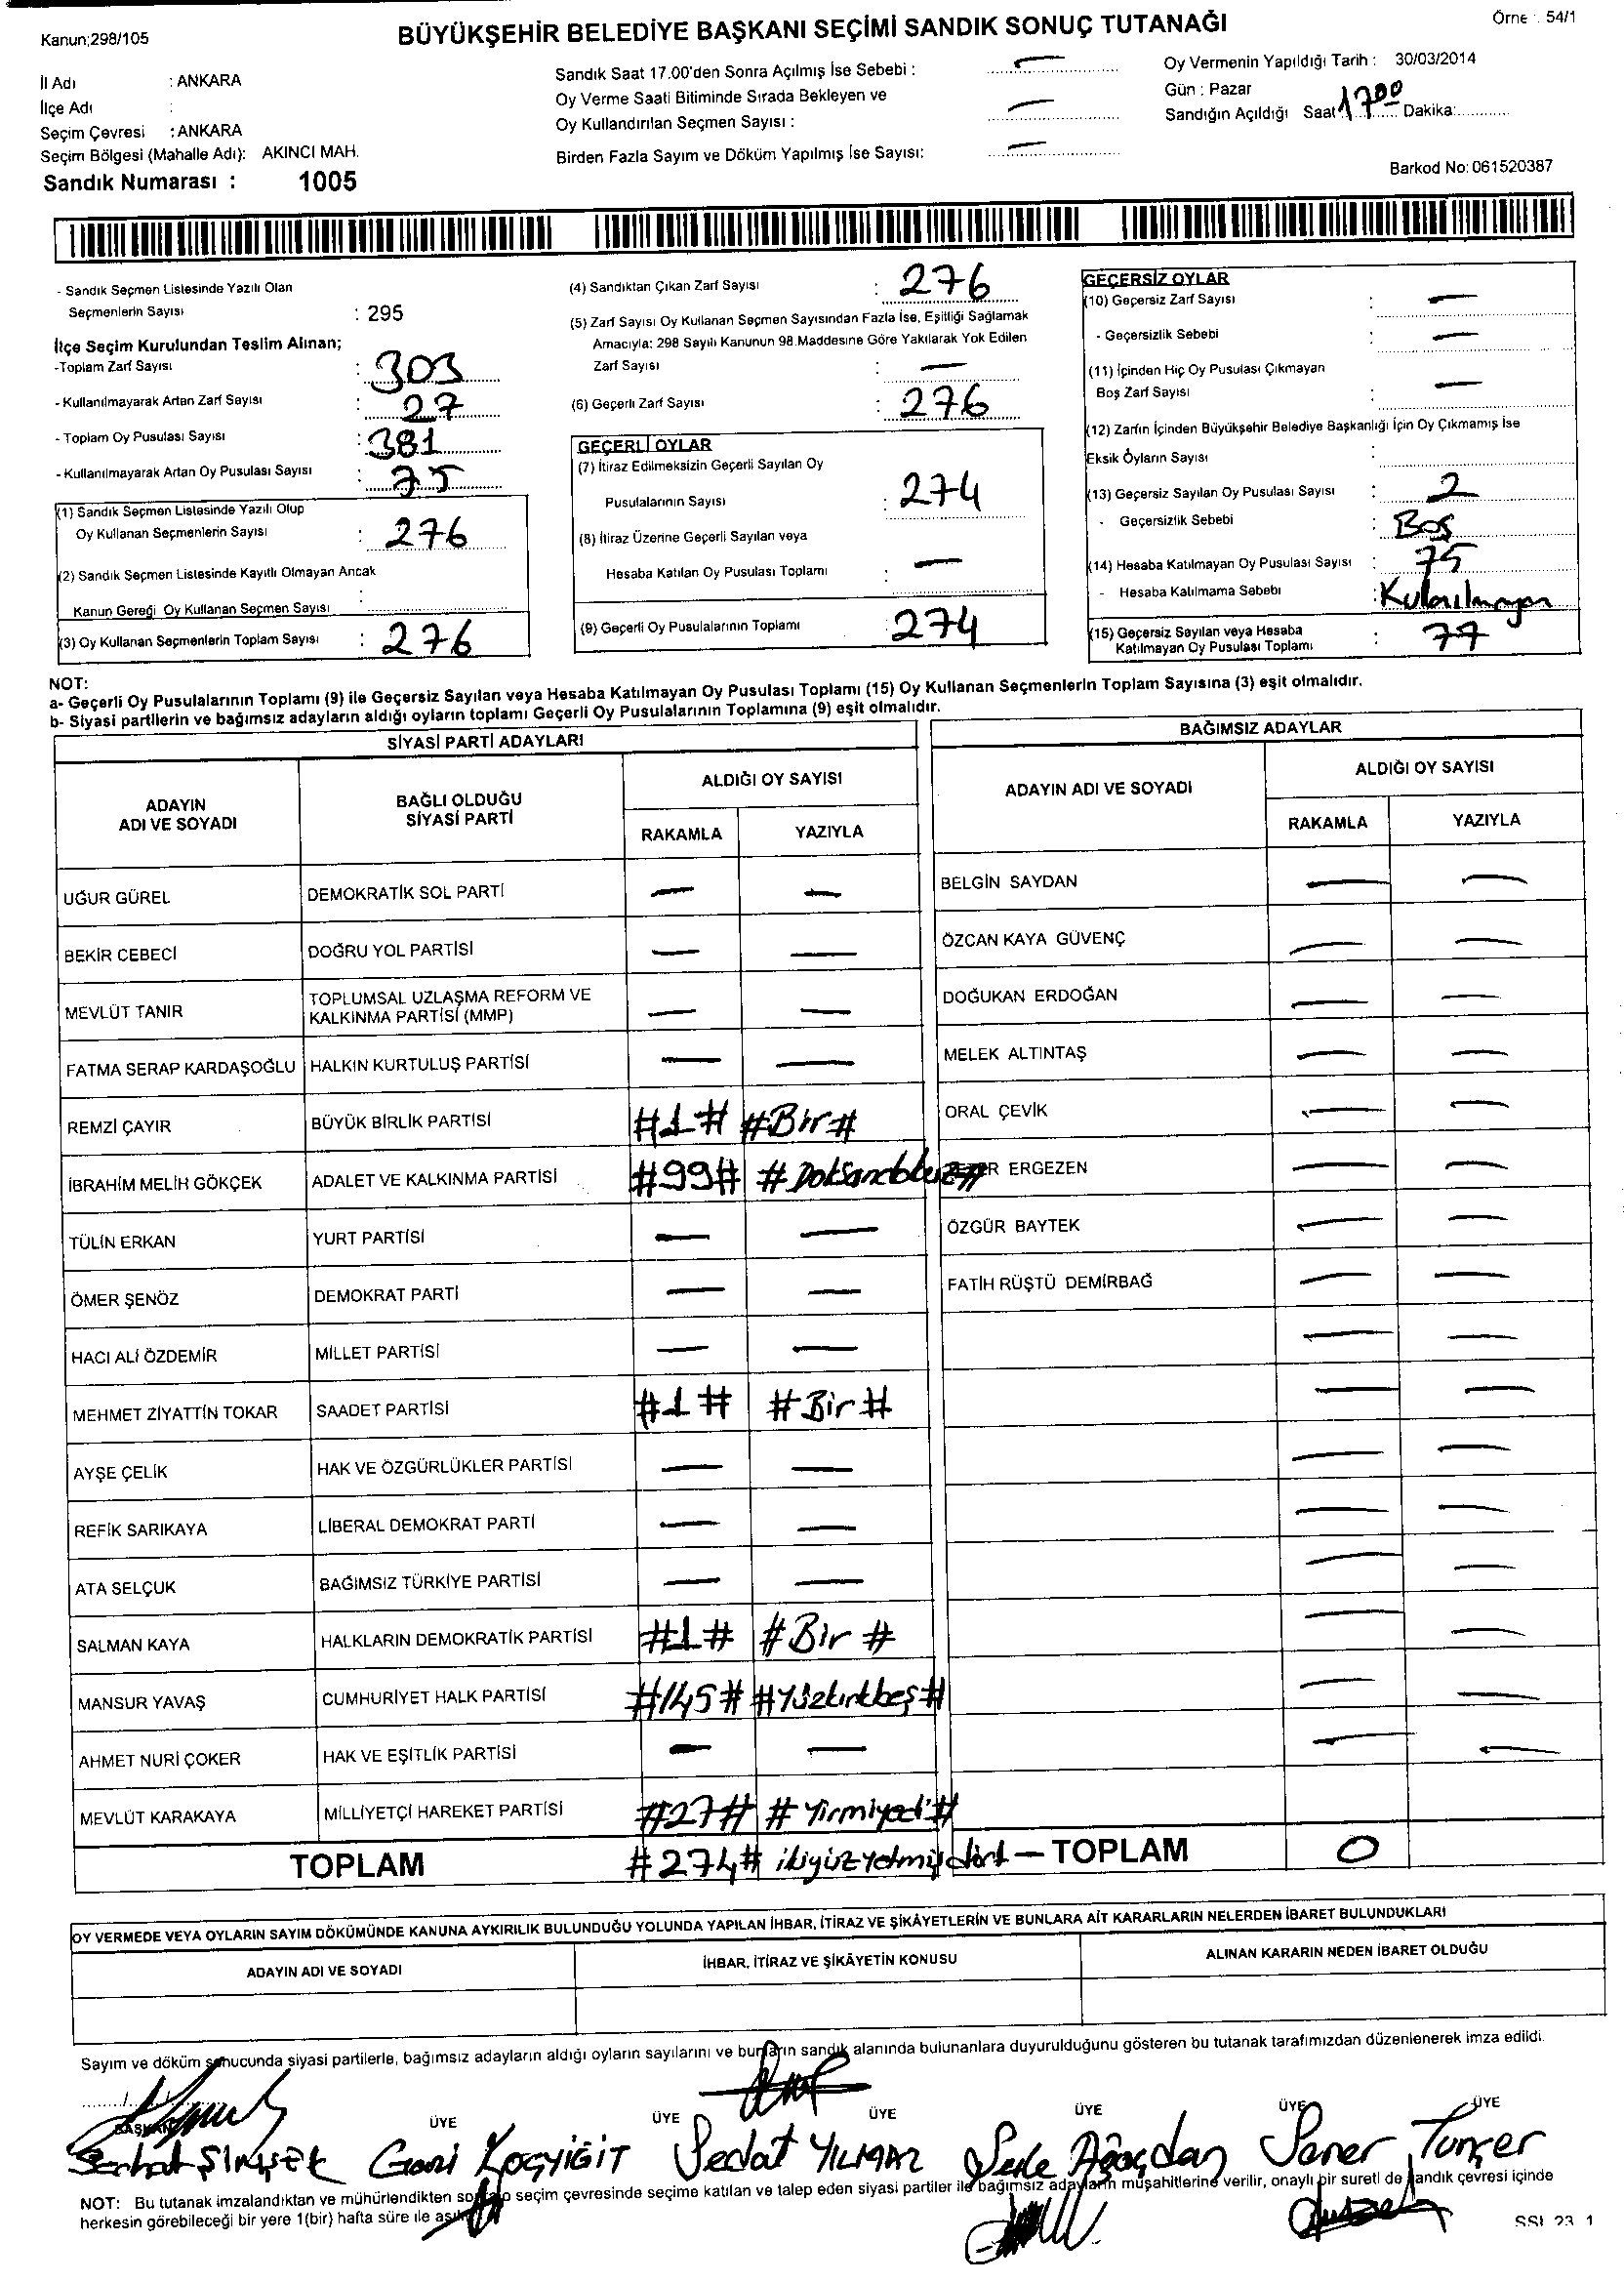 Kanun;298/105
BÜYÜKŞEHİR BELEDİYE BAŞKANI SEÇİMİ SANDIK SONUÇ TUTANAĞI
Örne : 54/1
İl Adı : ANKARA
İlçe Adı :
Seçim Çevresi : ANKARA
Seçim Bölgesi (Mahalle Adı): AKINCI MAH.
Sandık Numarası : 1005
Sandık Saat 17.00'den Sonra Açılmış İse Sebebi : —
Oy Verme Saati Bitiminde Sırada Bekleyen ve
Oy Kullandırılan Seçmen Sayısı : —
Birden Fazla Sayım ve Döküm Yapılmış İse Sayısı: —
Oy Vermenin Yapıldığı Tarih : 30/03/2014
Gün : Pazar
Sandığın Açıldığı Saat 1700 Dakika:
Barkod No: 061520387
- Sandık Seçmen Listesinde Yazılı Olan
Seçmenlerin Sayısı : 295
İlçe Seçim Kurulundan Teslim Alınan;
-Toplam Zarf Sayısı : 303
- Kullanılmayarak Artan Zarf Sayısı : 27
- Toplam Oy Pusulası Sayısı : 381
- Kullanılmayarak Artan Oy Pusulası Sayısı : 75
(1) Sandık Seçmen Listesinde Yazılı Olup
Oy Kullanan Seçmenlerin Sayısı : 276
(2) Sandık Seçmen Listesinde Kayıtlı Olmayan Ancak
Kanun Gereği Oy Kullanan Seçmen Sayısı :
(3) Oy Kullanan Seçmenlerin Toplam Sayısı : 276
(4) Sandıktan Çıkan Zarf Sayısı : 276
(5) Zarf Sayısı Oy Kullanan Seçmen Sayısından Fazla İse, Eşitliği Sağlamak
Amacıyla; 298 Sayılı Kanunun 98.Maddesine Göre Yakılarak Yok Edilen
Zarf Sayısı : —
(6) Geçerli Zarf Sayısı : 276
GEÇERLİ OYLAR
(7) İtiraz Edilmeksizin Geçerli Sayılan Oy
Pusulalarının Sayısı : 274
(8) İtiraz Üzerine Geçerli Sayılan veya
Hesaba Katılan Oy Pusulası Toplamı : —
(9) Geçerli Oy Pusulalarının Toplamı : 274
GEÇERSİZ OYLAR
(10) Geçersiz Zarf Sayısı : —
- Geçersizlik Sebebi : —
(11) İçinden Hiç Oy Pusulası Çıkmayan
Boş Zarf Sayısı : —
(12) Zarfın İçinden Büyükşehir Belediye Başkanlığı İçin Oy Çıkmamış İse
Eksik Oyların Sayısı :
(13) Geçersiz Sayılan Oy Pusulası Sayısı : 2
- Geçersizlik Sebebi : Boş
(14) Hesaba Katılmayan Oy Pusulası Sayısı : 75
- Hesaba Katılmama Sebebi :
(15) Geçersiz Sayılan veya Hesaba
Katılmayan Oy Pusulası Toplamı : 77
NOT:
a- Geçerli Oy Pusulalarının Toplamı (9) ile Geçersiz Sayılan veya Hesaba Katılmayan Oy Pusulası Toplamı (15) Oy Kullanan Seçmenlerin Toplam Sayısına (3) eşit olmalıdır.
b- Siyasi partilerin ve bağımsız adayların aldığı oyların toplamı Geçerli Oy Pusulalarının Toplamına (9) eşit olmalıdır.
SİYASİ PARTİ ADAYLARI
ADAYIN ADI VE SOYADI BAĞLI OLDUĞU SİYASİ PARTİ ALDIĞI OY SAYISI
RAKAMLA YAZIYLA
UĞUR GÜREL DEMOKRATİK SOL PARTİ — —
BEKİR CEBECİ DOĞRU YOL PARTİSİ — —
MEVLÜT TANIR TOPLUMSAL UZLAŞMA REFORM VE KALKINMA PARTİSİ (MMP) — —
FATMA SERAP KARDAŞOĞLU HALKIN KURTULUŞ PARTİSİ — —
REMZİ ÇAYIR BÜYÜK BİRLİK PARTİSİ #1# #Bir#
İBRAHİM MELİH GÖKÇEK ADALET VE KALKINMA PARTİSİ #99# #Doksandokuz#
TÜLİN ERKAN YURT PARTİSİ — —
ÖMER ŞENÖZ DEMOKRAT PARTİ — —
HACI ALİ ÖZDEMİR MİLLET PARTİSİ — —
MEHMET ZİYATTİN TOKAR SAADET PARTİSİ #1# #Bir#
AYŞE ÇELİK HAK VE ÖZGÜRLÜKLER PARTİSİ — —
REFİK SARIKAYA LİBERAL DEMOKRAT PARTİ — —
ATA SELÇUK BAĞIMSIZ TÜRKİYE PARTİSİ — —
SALMAN KAYA HALKLARIN DEMOKRATİK PARTİSİ #1# #Bir #
MANSUR YAVAŞ CUMHURİYET HALK PARTİSİ #145# #Yüzkırkbeş#
AHMET NURİ ÇOKER HAK VE EŞİTLİK PARTİSİ — —
MEVLÜT KARAKAYA MİLLİYETÇİ HAREKET PARTİSİ #27# #Yirmiyedi#
TOPLAM #274# ikiyüzyetmişdört —
BAĞIMSIZ ADAYLAR
ADAYIN ADI VE SOYADI ALDIĞI OY SAYISI
RAKAMLA YAZIYLA
BELGİN SAYDAN — —
ÖZCAN KAYA GÜVENÇ — —
DOĞUKAN ERDOĞAN — —
MELEK ALTINTAŞ — —
ORAL ÇEVİK — —
ERGEZEN — —
ÖZGÜR BAYTEK — —
FATİH RÜŞTÜ DEMİRBAĞ — —
TOPLAM 0
OY VERMEDE VEYA OYLARIN SAYIM DÖKÜMÜNDE KANUNA AYKIRILIK BULUNDUĞU YOLUNDA YAPILAN İHBAR, İTİRAZ VE ŞİKÂYETLERİN VE BUNLARA AİT KARARLARIN NELERDEN İBARET BULUNDUKLARI
ADAYIN ADI VE SOYADI İHBAR, İTİRAZ VE ŞİKÂYETİN KONUSU ALINAN KARARIN NEDEN İBARET OLDUĞU
Sayım ve döküm sonucunda siyasi partilerle, bağımsız adayların aldığı oyların sayılarını ve bunların sandık alanında bulunanlara duyurulduğunu gösteren bu tutanak tarafımızdan düzenlenerek imza edildi.
BAŞKAN ÜYE ÜYE ÜYE ÜYE ÜYE ÜYE
Serhat ŞİMŞEK Gazi KOÇYİĞİT Sedat YILMAZ Ağaçdan Soner Tunçer
NOT: Bu tutanak imzalandıktan ve mühürlendikten sonra o seçim çevresinde seçime katılan ve talep eden siyasi partiler ile bağımsız adayların müşahitlerine verilir, onaylı bir sureti de sandık çevresi içinde
herkesin görebileceği bir yere 1(bir) hafta süre ile
SSI 23 1